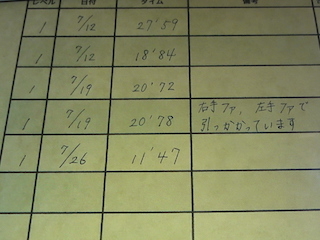 レベル 日付 タイム 備考
1 7/12 27'59
1 7/12 18'84
1 7/19 20'72
1 7/19 20'78 右手ファ、左手ファで
引っかかっています
1 7/26 11'47